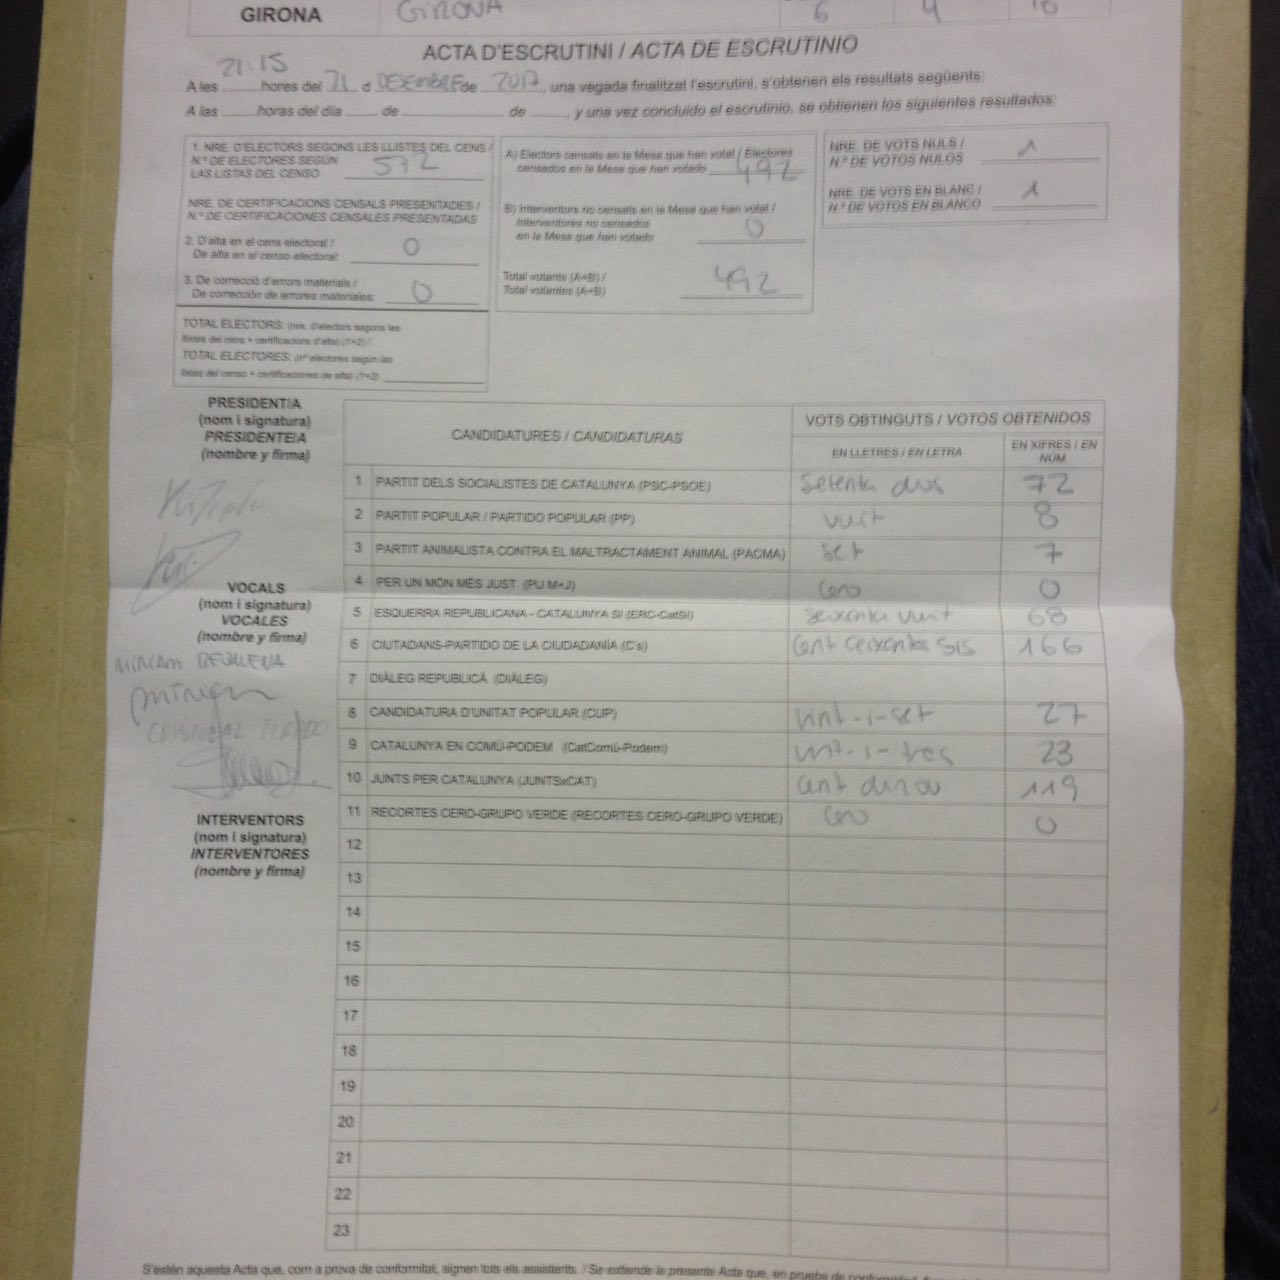 GIRONA GIRONA 6 4
ACTA D'ESCRUTINI / ACTA DE ESCRUTINIO
A les 21:15 hores del 21 d DESEMBRE de 2017, una vegada finalitzat l'escrutini, s'obtenen els resultats següents:
A las ........ horas del día ........ de ........ de ........, y una vez concluido el escrutinio, se obtienen los siguientes resultados:
1. NRE. D'ELECTORS SEGONS LES LLISTES DEL CENS /
N.º DE ELECTORES SEGÚN
LAS LISTAS DEL CENSO 572
NRE. DE CERTIFICACIONS CENSALS PRESENTADES /
N.º DE CERTIFICACIONES CENSALES PRESENTADAS
2. D'alta en el cens electoral /
De alta en el censo electoral: 0
3. De correcció d'errors materials /
De corrección de errores materiales: 0
TOTAL ELECTORS: (nre. d'electors segons les
llistes del cens + certificacions d'alta) (1+2) /
TOTAL ELECTORES: (nº electores según las
listas del censo + certificaciones de alta) (1+2)
A) Electors censats en la Mesa que han votat / Electores
censados en la Mesa que han votado 492
B) Interventors no censats en la Mesa que han votat /
Interventores no censados
en la Mesa que han votado 0
Total votants (A+B) /
Total votantes (A+B) 492
NRE. DE VOTS NULS /
N.º DE VOTOS NULOS 1
NRE. DE VOTS EN BLANC /
N.º DE VOTOS EN BLANCO 1
PRESIDENT/A
(nom i signatura)
PRESIDENTE/A
(nombre y firma)
VOCALS
(nom i signatura)
VOCALES
(nombre y firma)
MIRIAM
INTERVENTORS
(nom i signatura)
INTERVENTORES
(nombre y firma)
CANDIDATURES / CANDIDATURAS
VOTS OBTINGUTS / VOTOS OBTENIDOS
EN LLETRES / EN LETRA
EN XIFRES / EN
NÚM.
1 PARTIT DELS SOCIALISTES DE CATALUNYA (PSC-PSOE) Setenta dos 72
2 PARTIT POPULAR / PARTIDO POPULAR (PP) vuit 8
3 PARTIT ANIMALISTA CONTRA EL MALTRACTAMENT ANIMAL (PACMA) set 7
4 PER UN MÓN MÉS JUST (PUM+J) Cero 0
5 ESQUERRA REPUBLICANA - CATALUNYA SÍ (ERC-CatSí) seixanta vuit 68
6 CIUTADANS-PARTIDO DE LA CIUDADANÍA (C's) Cent ceixanta sis 166
7 DIÀLEG REPUBLICÀ (DIÀLEG)
8 CANDIDATURA D'UNITAT POPULAR (CUP) Vint-i-set 27
9 CATALUNYA EN COMÚ-PODEM (CatComú-Podem) vint-i-tres 23
10 JUNTS PER CATALUNYA (JUNTSxCAT) Cent dinou 119
11 RECORTES CERO-GRUPO VERDE (RECORTES CERO-GRUPO VERDE) Cero 0
12
13
14
15
16
17
18
19
20
21
22
23
S'estén aquesta Acta que, com a prova de conformitat, signen tots els assistents. / Se extiende la presente Acta que, en prueba de conformidad,